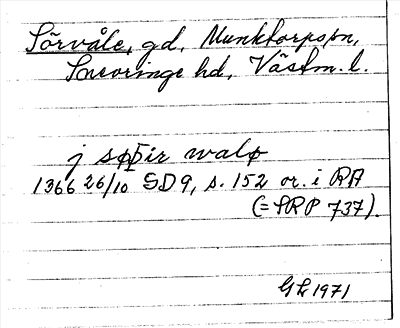 Sörvåle, gd, Munktorps sn,
Snevringe hd, Västm. l.
j søþir walø
1366 26/10 SD 9, s. 152 or. i RA
(= SRP 737).
GL 1971